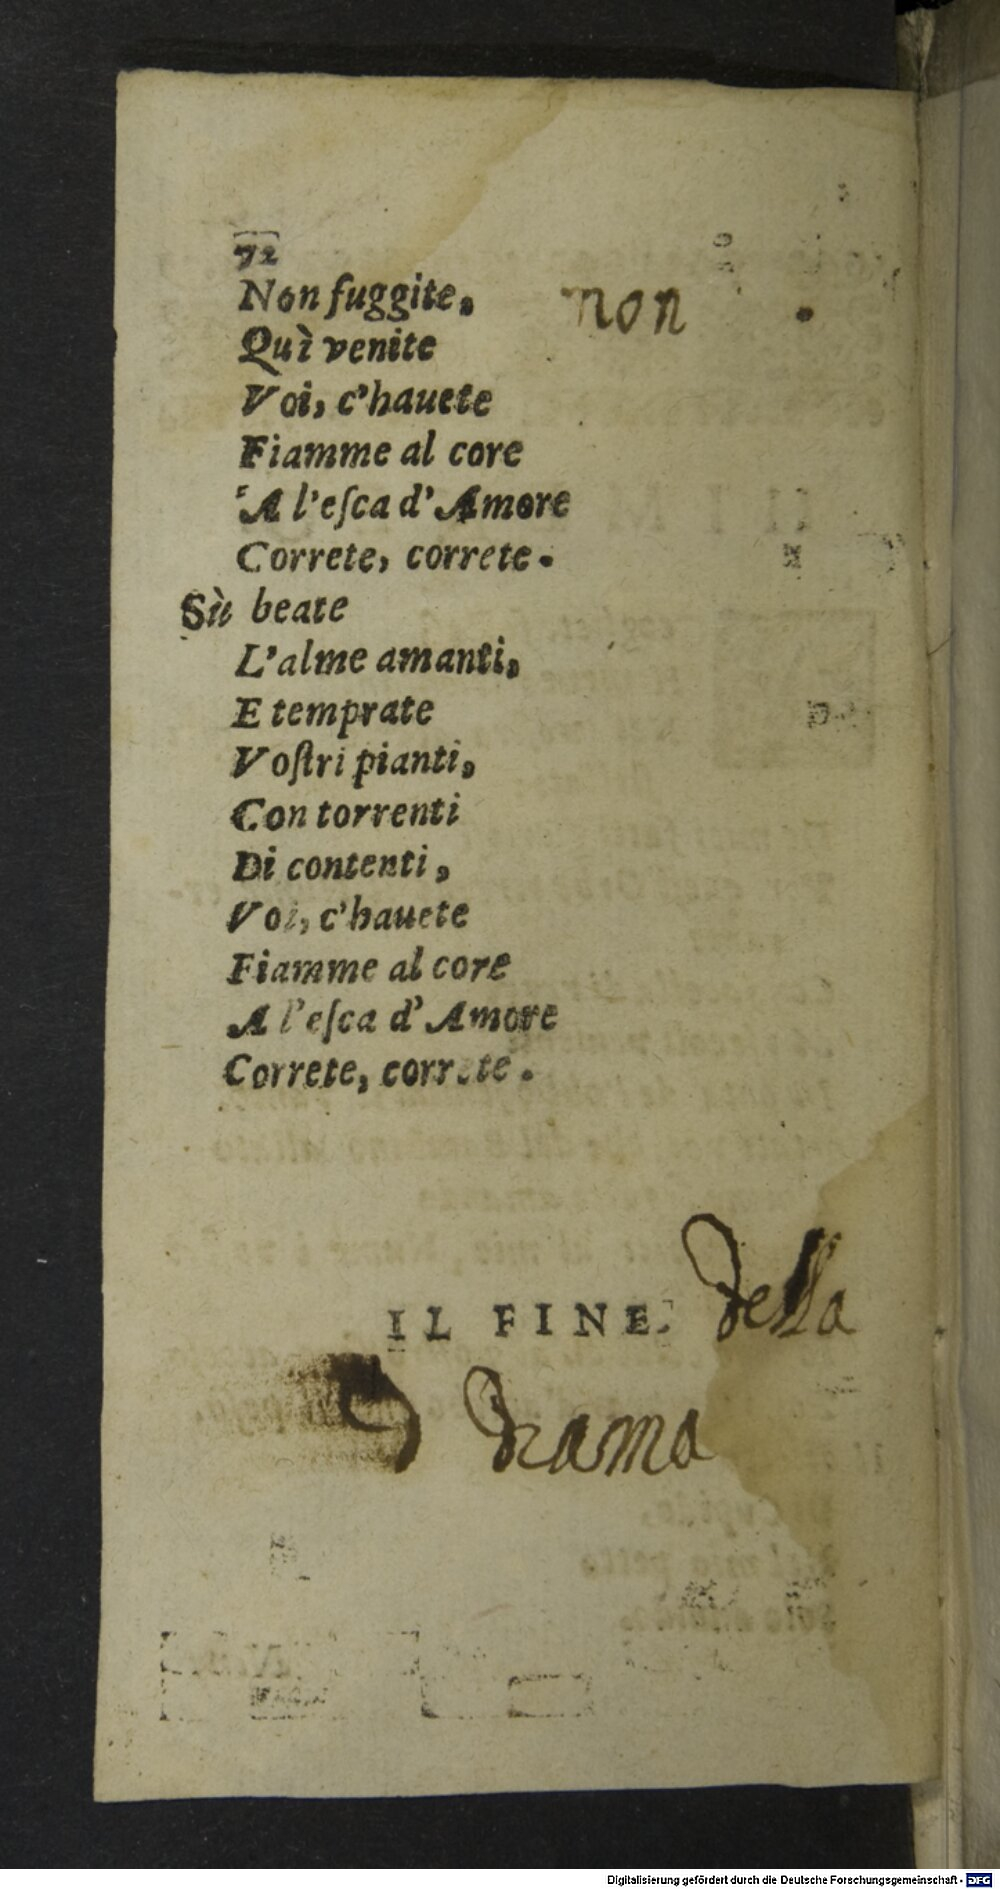 72
Non fuggite, non
Quì venite
Voi, c'hauete
Fiamme al core
A l'eſca d'Amore
Correte, correte.
Sù beate
L'alme amanti,
E temprate
Voſtri pianti,
Con torrenti
Di contenti,
Voi, c'hauete
Fiamme al core
A l'eſca d'Amore
Correte, correte.
IL FINE. della
drama
Digitalisierung gefördert durch die Deutsche Forschungsgemeinschaft - DFG